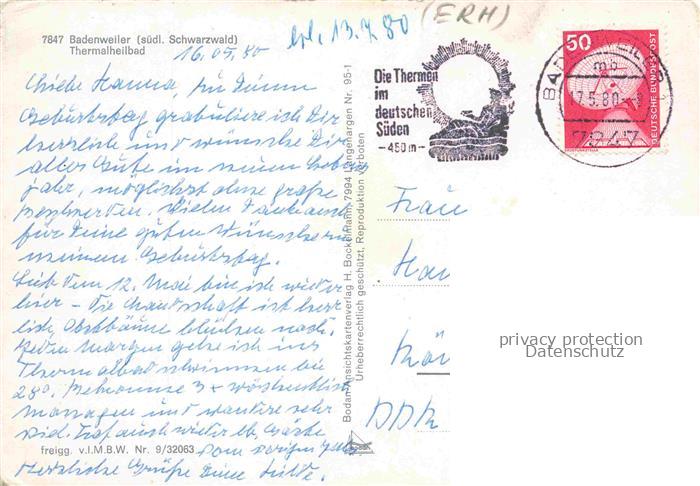 7847 Badenweiler (südl. Schwarzwald)
Thermalheilbad
16.05.80
erl. 13.7.80
(ERH)
Liebe Hanna, zu Deinem
Geburtstag gratuliere ich Dir
herzlich und wünsche Dir
alles Gute im neuen Lebens
jahr, möglichst ohne große
Beschwerden. Vielen Dank auch
für Deine guten Wünsche
meinem Geburtstag.
Seit dem 12. Mai bin ich wieder
hier – Die Landschaft ist herr
lich, Obstbäume blühen noch.
Jeden Morgen gehe ich ins
Thermalbad schwimmen bei
28°. Bekomme 3x wöchentlich
Massagen und wandere sehr
viel. Traf auch wieder Gäste
vom vorigen Jahr
Herzliche Grüße Deine
freigg. v.I.M.B.W. Nr. 9/32063
Bodan-Ansichtskartenverlag H. Bockelmann, 7994 Langenargen Nr. 95-1
Urheberrechtlich geschützt, Reproduktion verboten
Die Thermen
im
deutschen
Süden
- 450 m -
BADENWEILER
mb
7.5.80
7847
50
DEUTSCHE BUNDESPOST
Frau
Han
DDR
privacy protection
Datenschutz